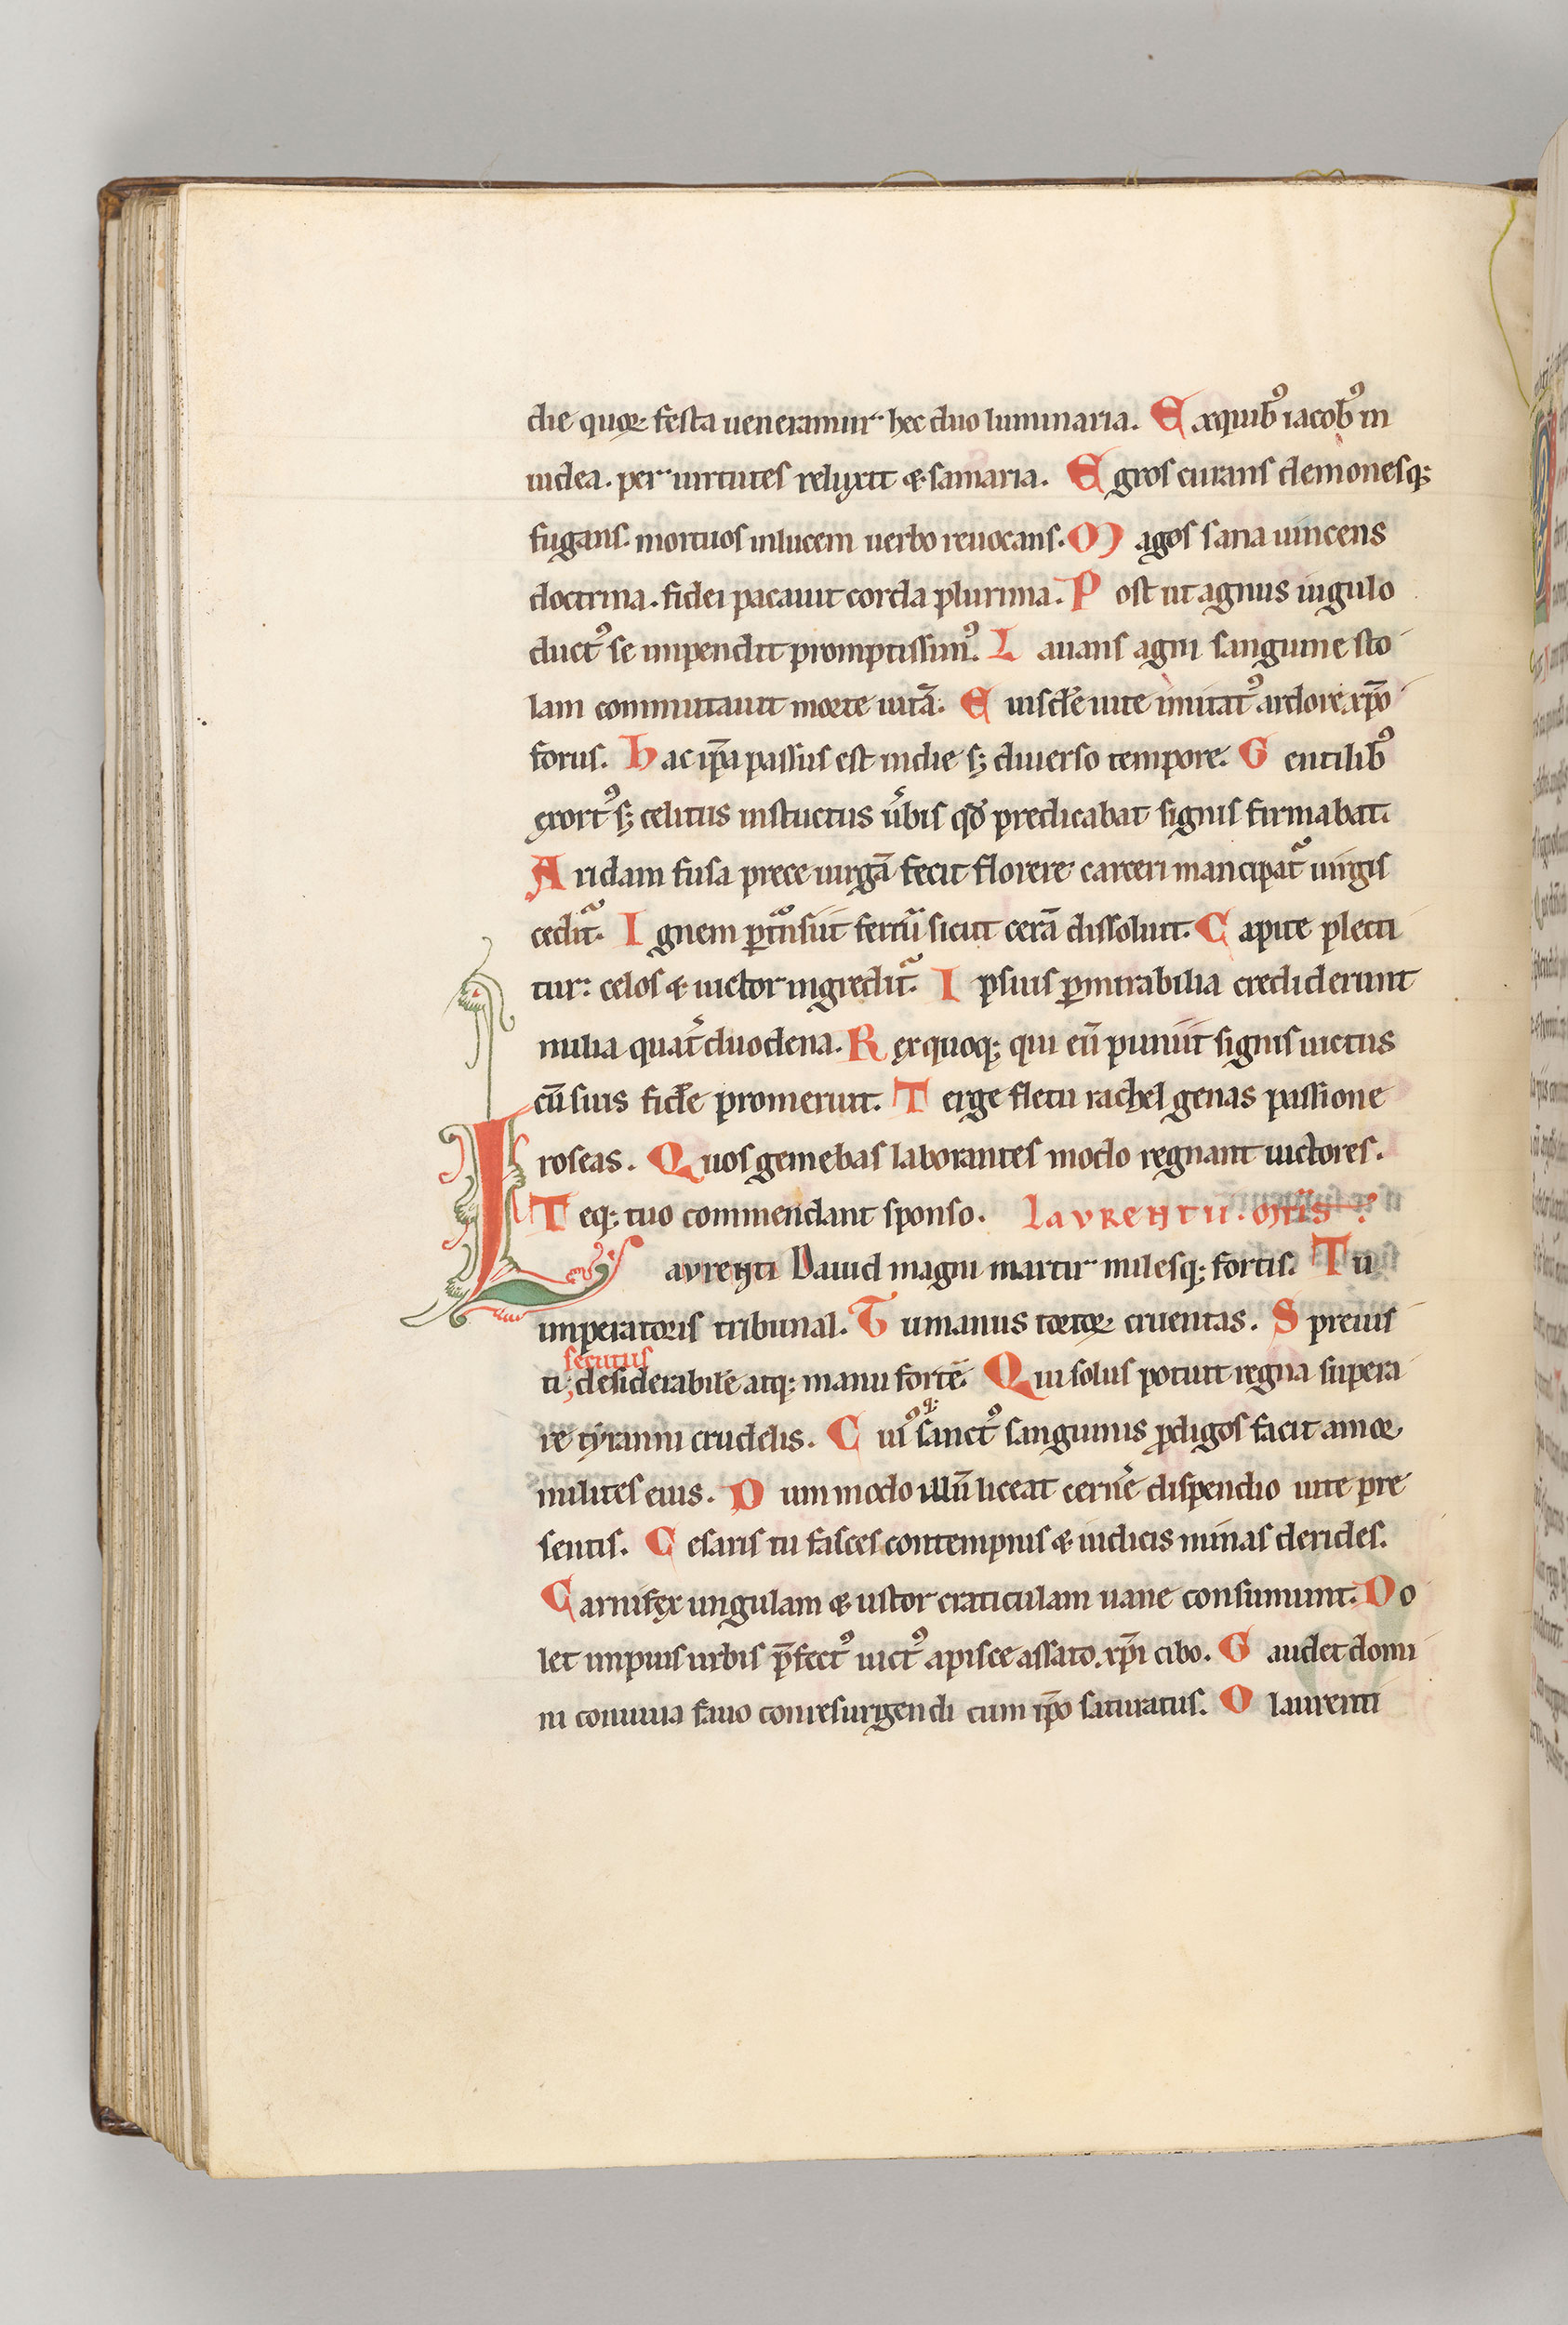 die quoꝝ festa ueneramur hec duo luminaria. E xquibꝰ iacobꝰ in
iudea. per uirtutes reluxit & samaria. E gros curans demonesqꝫ
fugans. mortuos inlucem uerbo reuocans. M agos sana uincens
doctrina. fidei pacauit corda plurima. P ost ut agnus iugulo
ductꝰ se impendit promptissimꝰ. L auans agni sanguine sto
lam commutauit morte uitā. E iusdē uite imitatꝰ ardore xp̄o
forus. h ac ip̄a passus est indie sꝫ diuerso tempore. G entilibꝰ
exortꝰ sꝫ celitus instuctus u̓bis qd̓ predicabat signis firmabat.
A ridam fusa prece uirgā fecit florere carceri mancipatᷓ uirgis
ceditᷓ. I gnem ꝑtnsiit ferrū sicut cerā dissoluit. C apite plecti
tur: celos & uictor ingreditᷓ. I psius ꝑmirabilia crediderunt
milia quat̓ duodena. R ex quoqꝫ qui eū puniit signis uictus
cū suis fidē promeruit. T erge fletu rachel genas passione
roseas. Q uos gemebas laborantes modo regnant uictores.
T eqꝫ tuo commendant sponso. laurentii.
L aurenti Dauid magni martir milesqꝫ fortis. T u
imperatoris tribunal. T u manus tortoꝝ cruentas. S preuis
secutus
ti; desiderabilē atqꝫ manu fortē. Q ui solus potuit regna supera
re tyranni crudelis. C uiꝰqꝫ sanctꝰ sanguinis ꝓdigos facit amor
milites eius. D um modo illū liceat cern̓e dispendio uite pre
sentis. C esaris tu fasces contempnis & iudicis minas derides.
C arnifex ungulam & ustor craticulam uane consumunt. D o
let impius urbis p̄fectꝰ uictꝰ a pisce assato. xp̄i cibo. G audet domi
ni conuiua fauo conresurgendi cum ip̄o saturatus. O laurenti